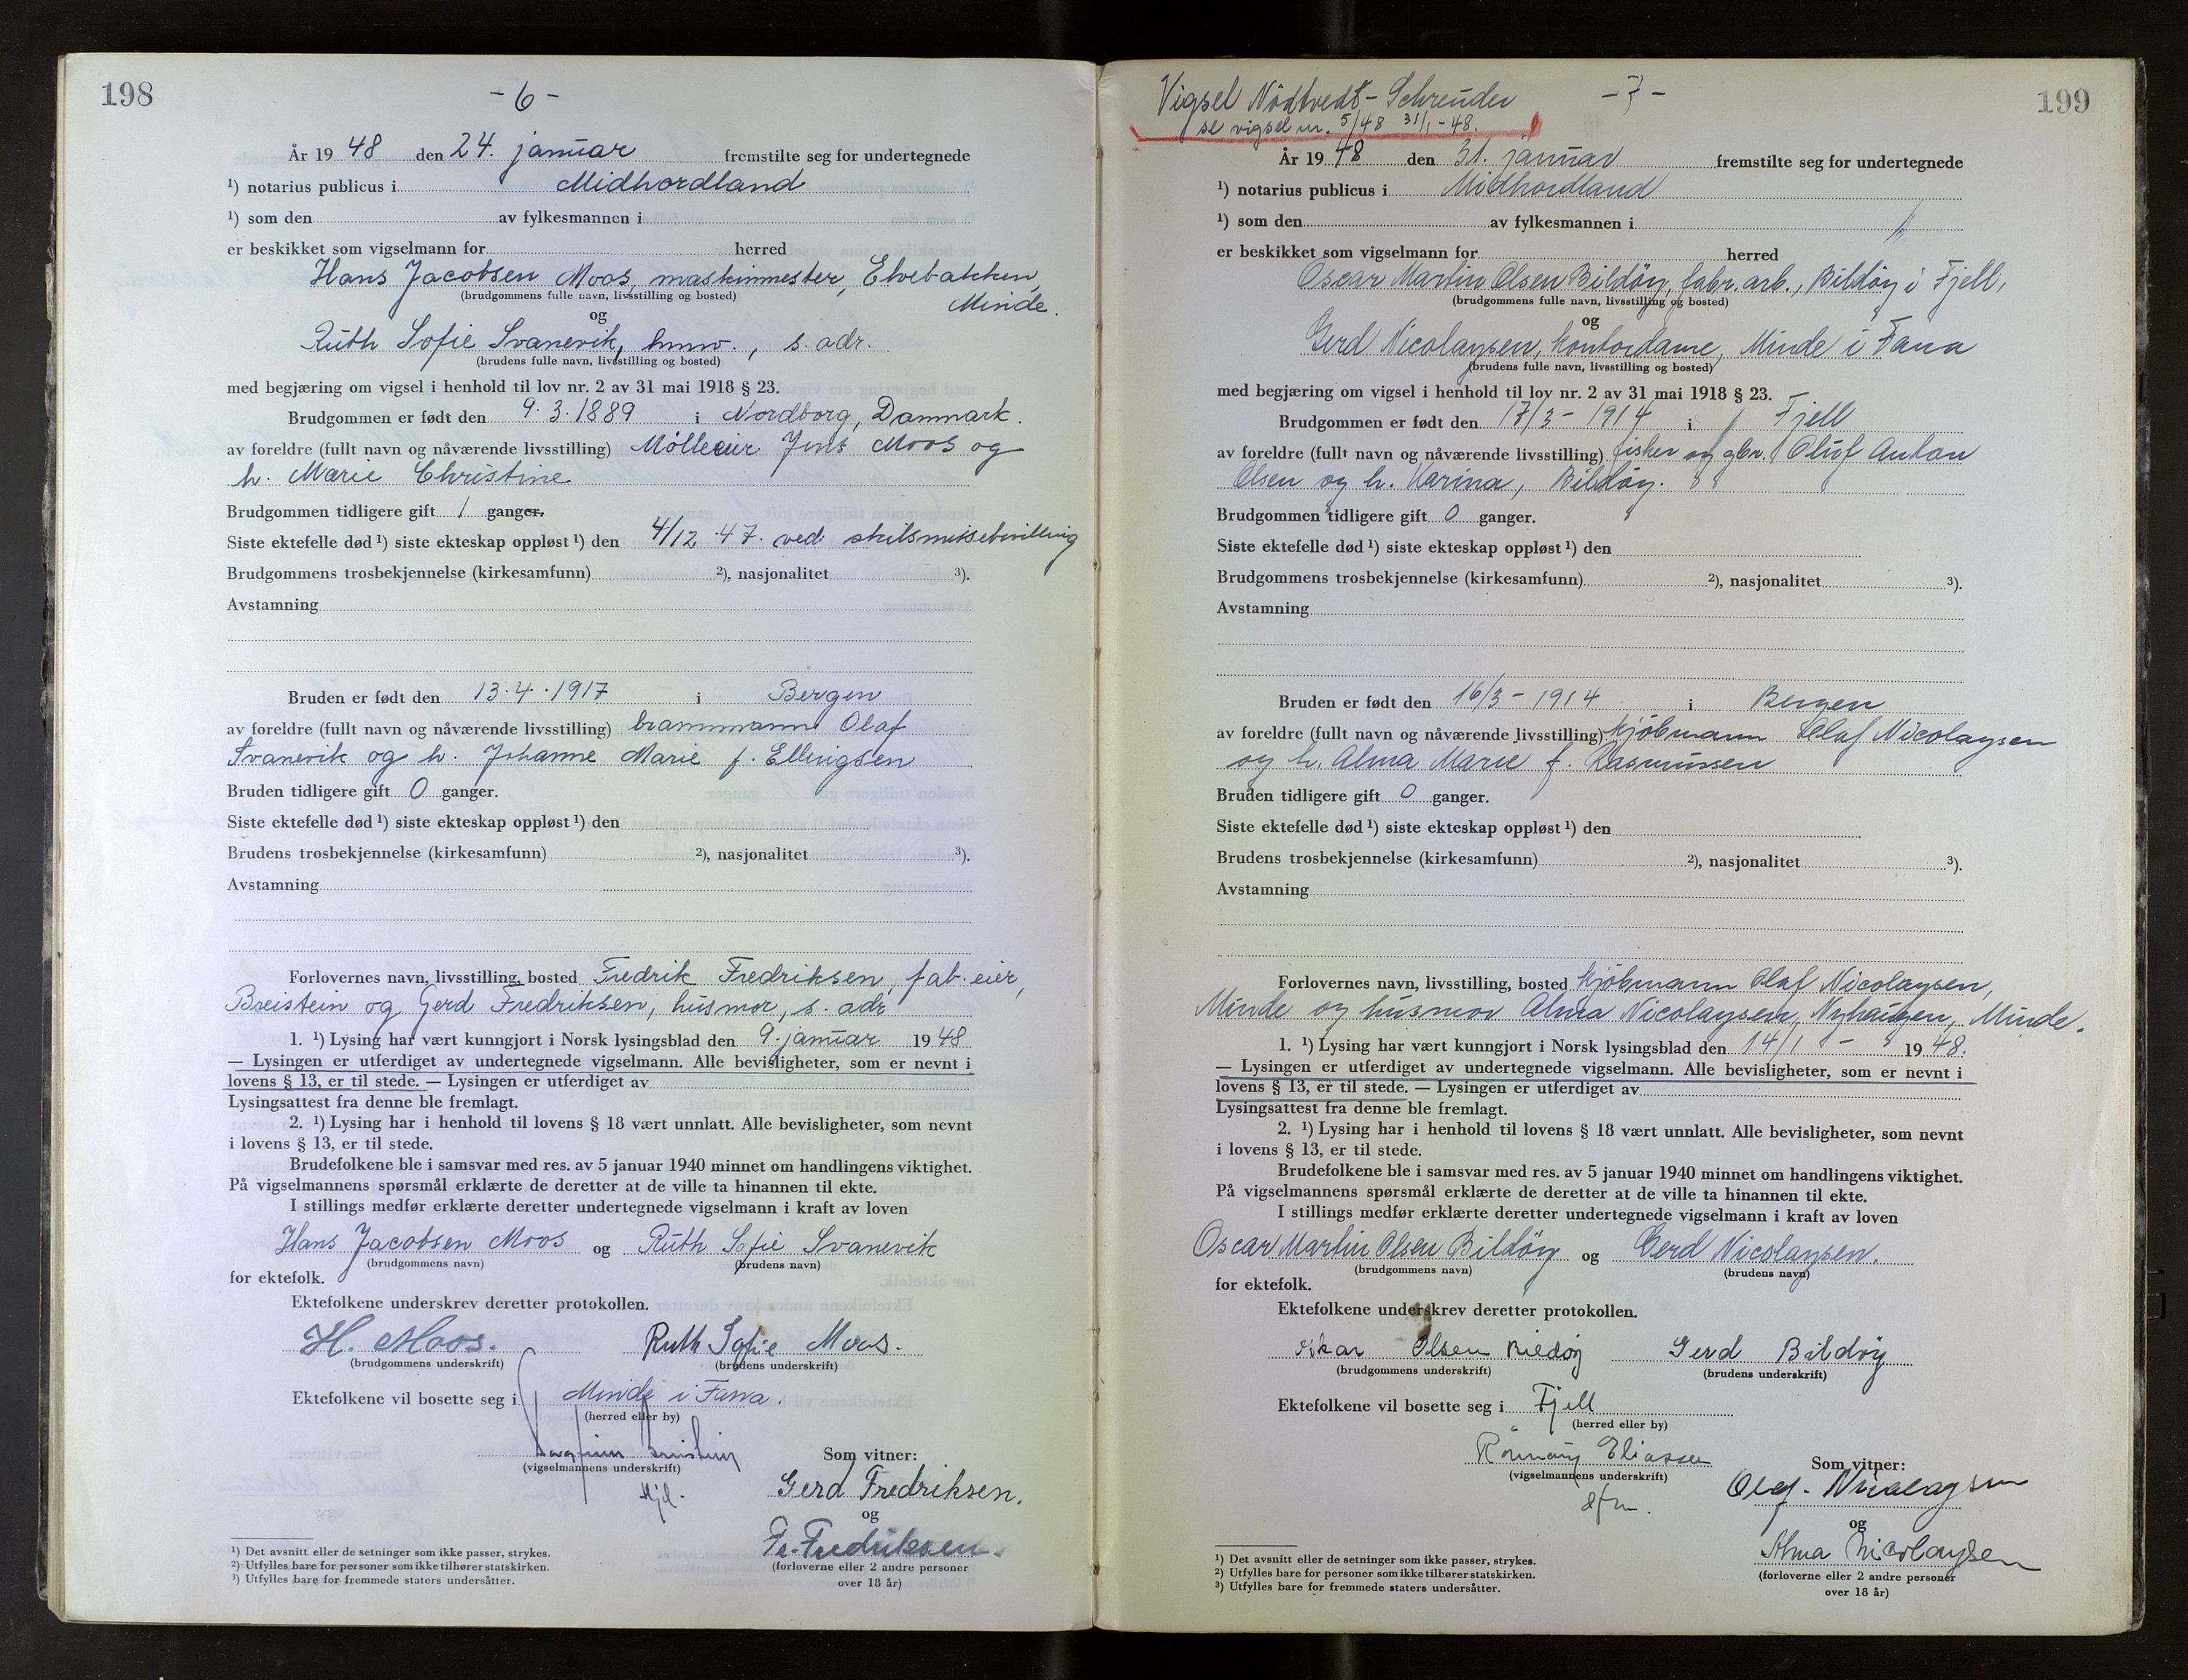 198
- 6 -
År 19 48 den 24. januar fremstilte seg for undertegnede
¹) notarius publicus i Midhordland
¹) som den av fylkesmannen i
er beskikket som vigselmann for herred
Hans Jacobsen Moos, maskinmester, Elvebakken,
(brudgommens fulle navn, livsstilling og bosted)
Minde.
og
Ruth Sofie Svanevik, hmv., s. adr.
(brudens fulle navn, livsstilling og bosted)
med begjæring om vigsel i henhold til lov nr. 2 av 31 mai 1918 § 23.
Brudgommen er født den 9.3.1889 i Nordborg, Danmark.
av foreldre (fullt navn og nåværende livsstilling) Mølleeier Jens Moos og
h. Marie Christine
Brudgommen tidligere gift 1 ganger.
Siste ektefelle død ¹) siste ekteskap oppløst ¹) den 4/12 47. ved skilsmissebevilling
Brudgommens trosbekjennelse (kirkesamfunn) ²), nasjonalitet ³).
Avstamning
Bruden er født den 13.4.1917 i Bergen
av foreldre (fullt navn og nåværende livsstilling) brannmann Olaf
Svanevik og h. Johanne Marie f. Ellingsen
Bruden tidligere gift 0 ganger.
Siste ektefelle død ¹) siste ekteskap oppløst ¹) den
Brudens trosbekjennelse (kirkesamfunn) ²), nasjonalitet ³).
Avstamning
Forlovernes navn, livsstilling, bosted Fredrik Fredriksen, fab. eier,
Breistein og Gerd Fredriksen, husmor, s. adr
1. ¹) Lysing har vært kunngjort i Norsk lysingsblad den 9. januar 19 48
— Lysingen er utferdiget av undertegnede vigselmann. Alle bevisligheter, som er nevnt i
lovens § 13, er til stede. — Lysingen er utferdiget av
Lysingsattest fra denne ble fremlagt.
2. ¹) Lysing har i henhold til lovens § 18 vært unnlatt. Alle bevisligheter, som nevnt
i lovens § 13, er til stede.
Brudefolkene ble i samsvar med res. av 5 januar 1940 minnet om handlingens viktighet.
På vigselmannens spørsmål erklærte de deretter at de ville ta hinannen til ekte.
I stillings medfør erklærte deretter undertegnede vigselmann i kraft av loven
Hans Jacobsen Moos og Ruth Sofie Svanevik
(brudgommens navn) (brudens navn)
for ektefolk.
Ektefolkene underskrev deretter protokollen.
H. Moos. Ruth Sofie Moos.
(brudgommens underskrift) (brudens underskrift)
Ektefolkene vil bosette seg i Minde i Fana.
(herred eller by)
Som vitner:
(vigselmannens underskrift)
Gerd Fredriksen.
og
Fr. Fredriksen.
(forloverne eller 2 andre personer
over 18 år)
¹) Det avsnitt eller de setninger som ikke passer, strykes.
²) Utfylles bare for personer som ikke tilhører statskirken.
³) Utfylles bare for fremmede staters undersåtter.
199
Vigsel Nödtvedt - Schreuder - 7 -
se vigsel nr. 5/48 31/1-48.
År 19 48 den 31. januar fremstilte seg for undertegnede
¹) notarius publicus i Midhordland
¹) som den av fylkesmannen i
er beskikket som vigselmann for herred
Oscar Martin Olsen Bildöy, fabr. arb., Bildöy i Fjell,
(brudgommens fulle navn, livsstilling og bosted)
og
Gerd Nicolaysen, kontordame, Minde i Fana
(brudens fulle navn, livsstilling og bosted)
med begjæring om vigsel i henhold til lov nr. 2 av 31 mai 1918 § 23.
Brudgommen er født den 17/3 - 1914 i Fjell
av foreldre (fullt navn og nåværende livsstilling) fisker og gbr. Oluf Anton
Olsen og h. Karina, Bildöy.
Brudgommen tidligere gift 0 ganger.
Siste ektefelle død ¹) siste ekteskap oppløst ¹) den
Brudgommens trosbekjennelse (kirkesamfunn) ²), nasjonalitet ³).
Avstamning
Bruden er født den 16/3 - 1914 i Bergen
av foreldre (fullt navn og nåværende livsstilling) kjöbmann Olaf Nicolaysen
og h. Alma Marie f. Rasmussen
Bruden tidligere gift 0 ganger.
Siste ektefelle død ¹) siste ekteskap oppløst ¹) den
Brudens trosbekjennelse (kirkesamfunn) ²), nasjonalitet ³).
Avstamning
Forlovernes navn, livsstilling, bosted kjöbmann Olaf Nicolaysen,
Minde og husmor Alma Nicolaysen, Nyhaugen, Minde.
1. ¹) Lysing har vært kunngjort i Norsk lysingsblad den 14/1 - 19 48.
— Lysingen er utferdiget av undertegnede vigselmann. Alle bevisligheter, som er nevnt i
lovens § 13, er til stede. — Lysingen er utferdiget av
Lysingsattest fra denne ble fremlagt.
2. ¹) Lysing har i henhold til lovens § 18 vært unnlatt. Alle bevisligheter, som nevnt
i lovens § 13, er til stede.
Brudefolkene ble i samsvar med res. av 5 januar 1940 minnet om handlingens viktighet.
På vigselmannens spørsmål erklærte de deretter at de ville ta hinannen til ekte.
I stillings medfør erklærte deretter undertegnede vigselmann i kraft av loven
Oscar Martin Olsen Bildöy og Gerd Nicolaysen.
(brudgommens navn) (brudens navn)
for ektefolk.
Ektefolkene underskrev deretter protokollen.
Oskar Olsen Bildöy Gerd Bildöy
(brudgommens underskrift) (brudens underskrift)
Ektefolkene vil bosette seg i Fjell
(herred eller by)
Rönnaug Eliassen
(vigselmannens underskrift)
dfm.
Som vitner:
Olaf Nicolaysen
og
Alma Nicolaysen
(forloverne eller 2 andre personer
over 18 år)
¹) Det avsnitt eller de setninger som ikke passer, strykes.
²) Utfylles bare for personer som ikke tilhører statskirken.
³) Utfylles bare for fremmede staters undersåtter.